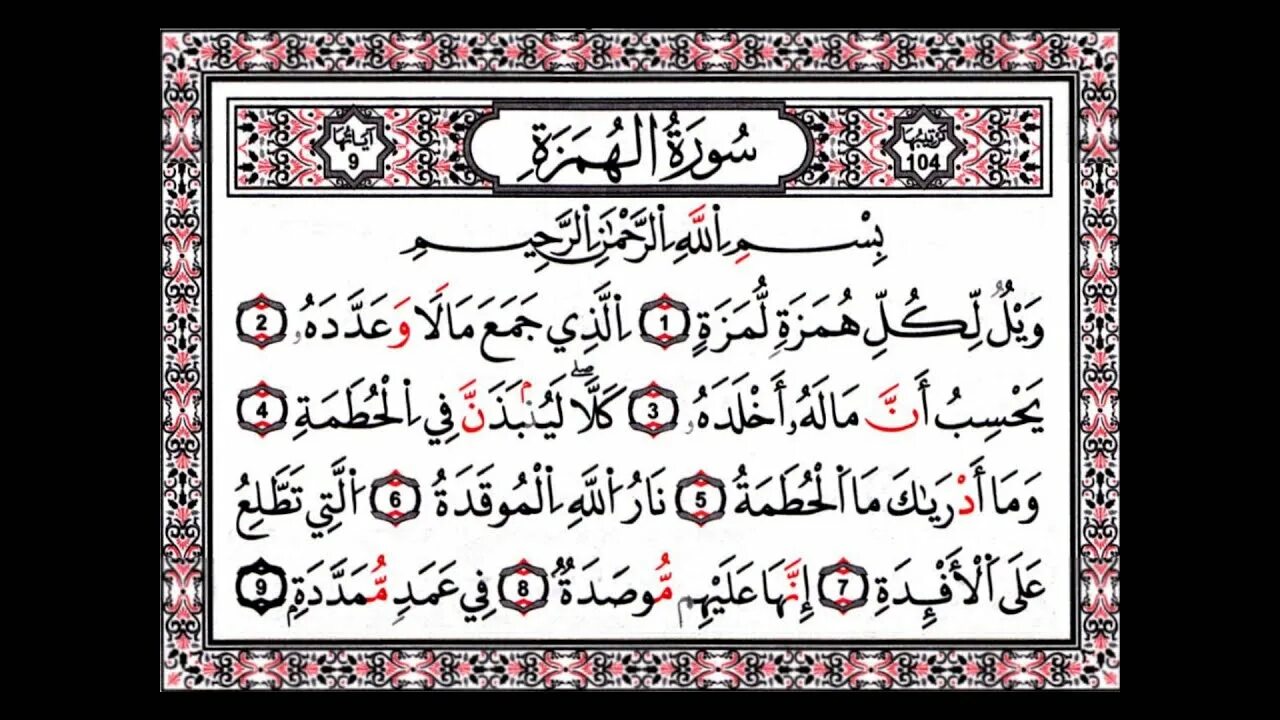 ترتيبها
104
سُورَةُ الْهُمَزَةِ
آيَاتُهَا
9
بِسْمِ اِ۬للَّهِ اِ۬لرَّحْمَٰنِ اِ۬لرَّحِيمِ
وَيْلٌ لِّكُلِّ هُمَزَةٍ لُّمَزَةٍ 1 اِ۬لَّذِي جَمَعَ مَالًا وَعَدَّدَهُۥ 2
يَحْسِبُ أَنَّ مَالَهُۥ أَخْلَدَهُۥ 3 كَلَّاۖ لَيُنۢبَذَنَّ فِي اِ۬لْحُطَمَةِ 4
وَمَا أَدْرَىٰكَ مَا اَ۬لْحُطَمَةُ 5 نَارُ اُ۬للَّهِ اِ۬لْمُوقَدَةُ 6 اُ۬لَّتِي تَطَّلِعُ
عَلَى اَ۬لْأَفْـِٕدَةِ 7 إِنَّهَا عَلَيْهِم مُّوصَدَةٌ 8 فِي عَمَدٍ مُّمَدَّدَةٍۭ 9